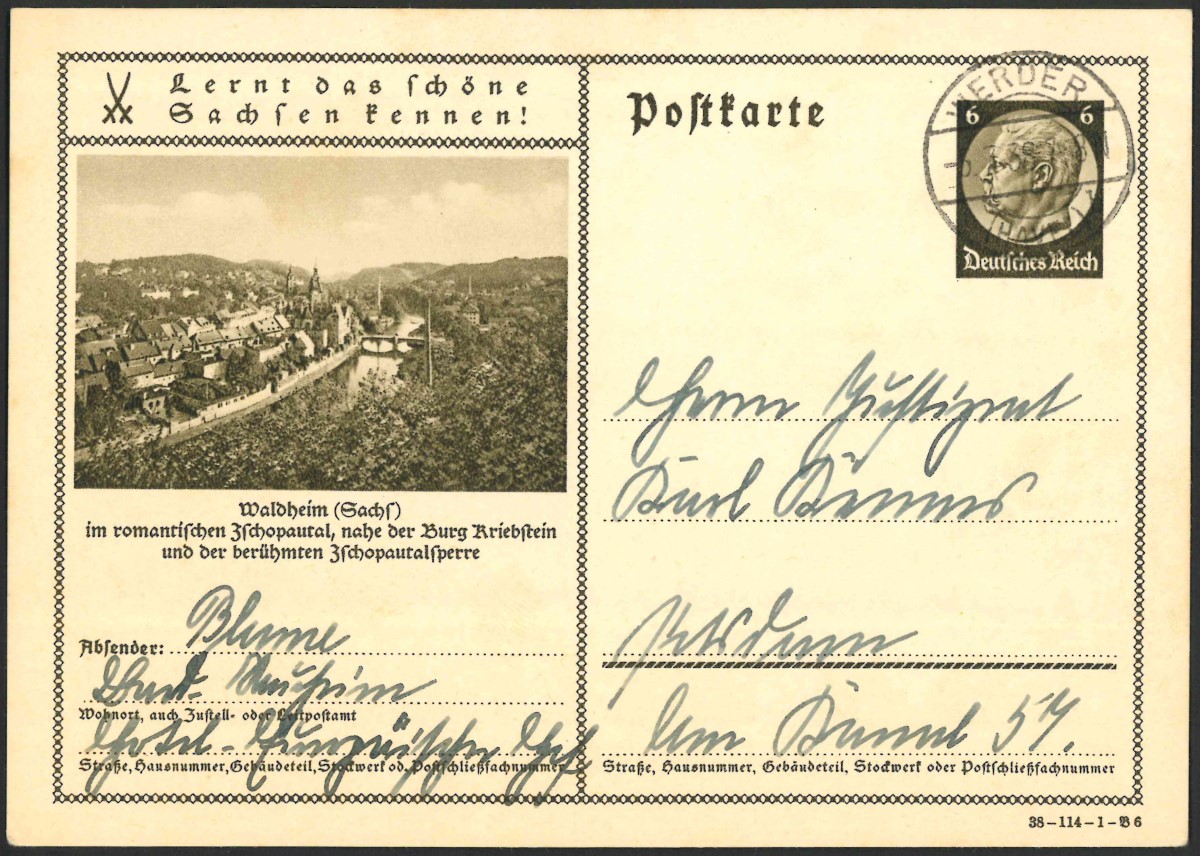 Lernt das schöne
Sachsen kennen!
Waldheim (Sachs)
im romantischen Zschopautal, nahe der Burg Kriebstein
und der berühmten Zschopautalsperre
Absender: Blume
Bad-Nauheim
Wohnort, auch Zustell- oder Leitpostamt
Hotel-Europäischer Hof
Straße, Hausnummer, Gebäudeteil, Stockwerk od. Postschließfachnummer
Postkarte
WERDER
(HAVEL)
6 6
Deutsches Reich
Herrn Justizrat
Karl
Potsdam
Am Kanal 57.
Straße, Hausnummer, Gebäudeteil, Stockwerk oder Postschließfachnummer
38-114-1-B6